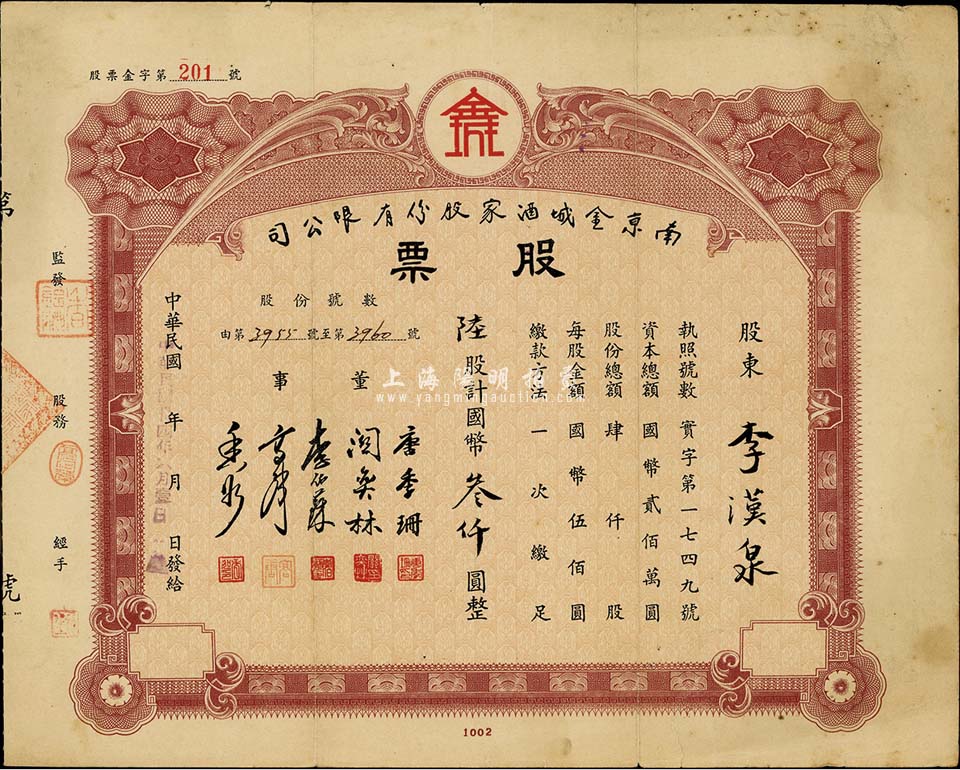 股票金字第 201 號
南京金城酒家股份有限公司
股票
股東 李漢泉
執照號數 實字第一七四九號
資本總額 國幣貳佰萬圓
股份總額 肆仟股
每股金額 國幣伍佰圓
繳款方法 一次繳足
陸股計國幣叄仟圓整
股份號數
由第 3955 號至第 3960 號
董事
唐季珊
中華民國 年 月 日發給
監發
股務
經手
號
1002
上海陽明拍賣
www.yangmingauction.com